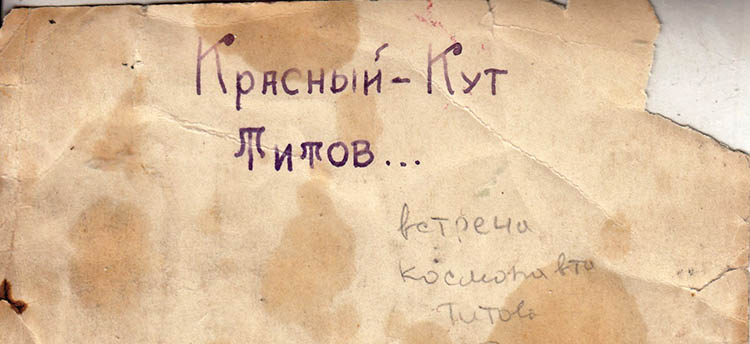 Красный-Кут
Титов...
встреча
космонавта
Титова